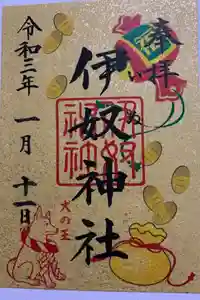 奉拝
伊奴神社
いぬ
伊奴神社
令和三年
一月
十一日
犬の王